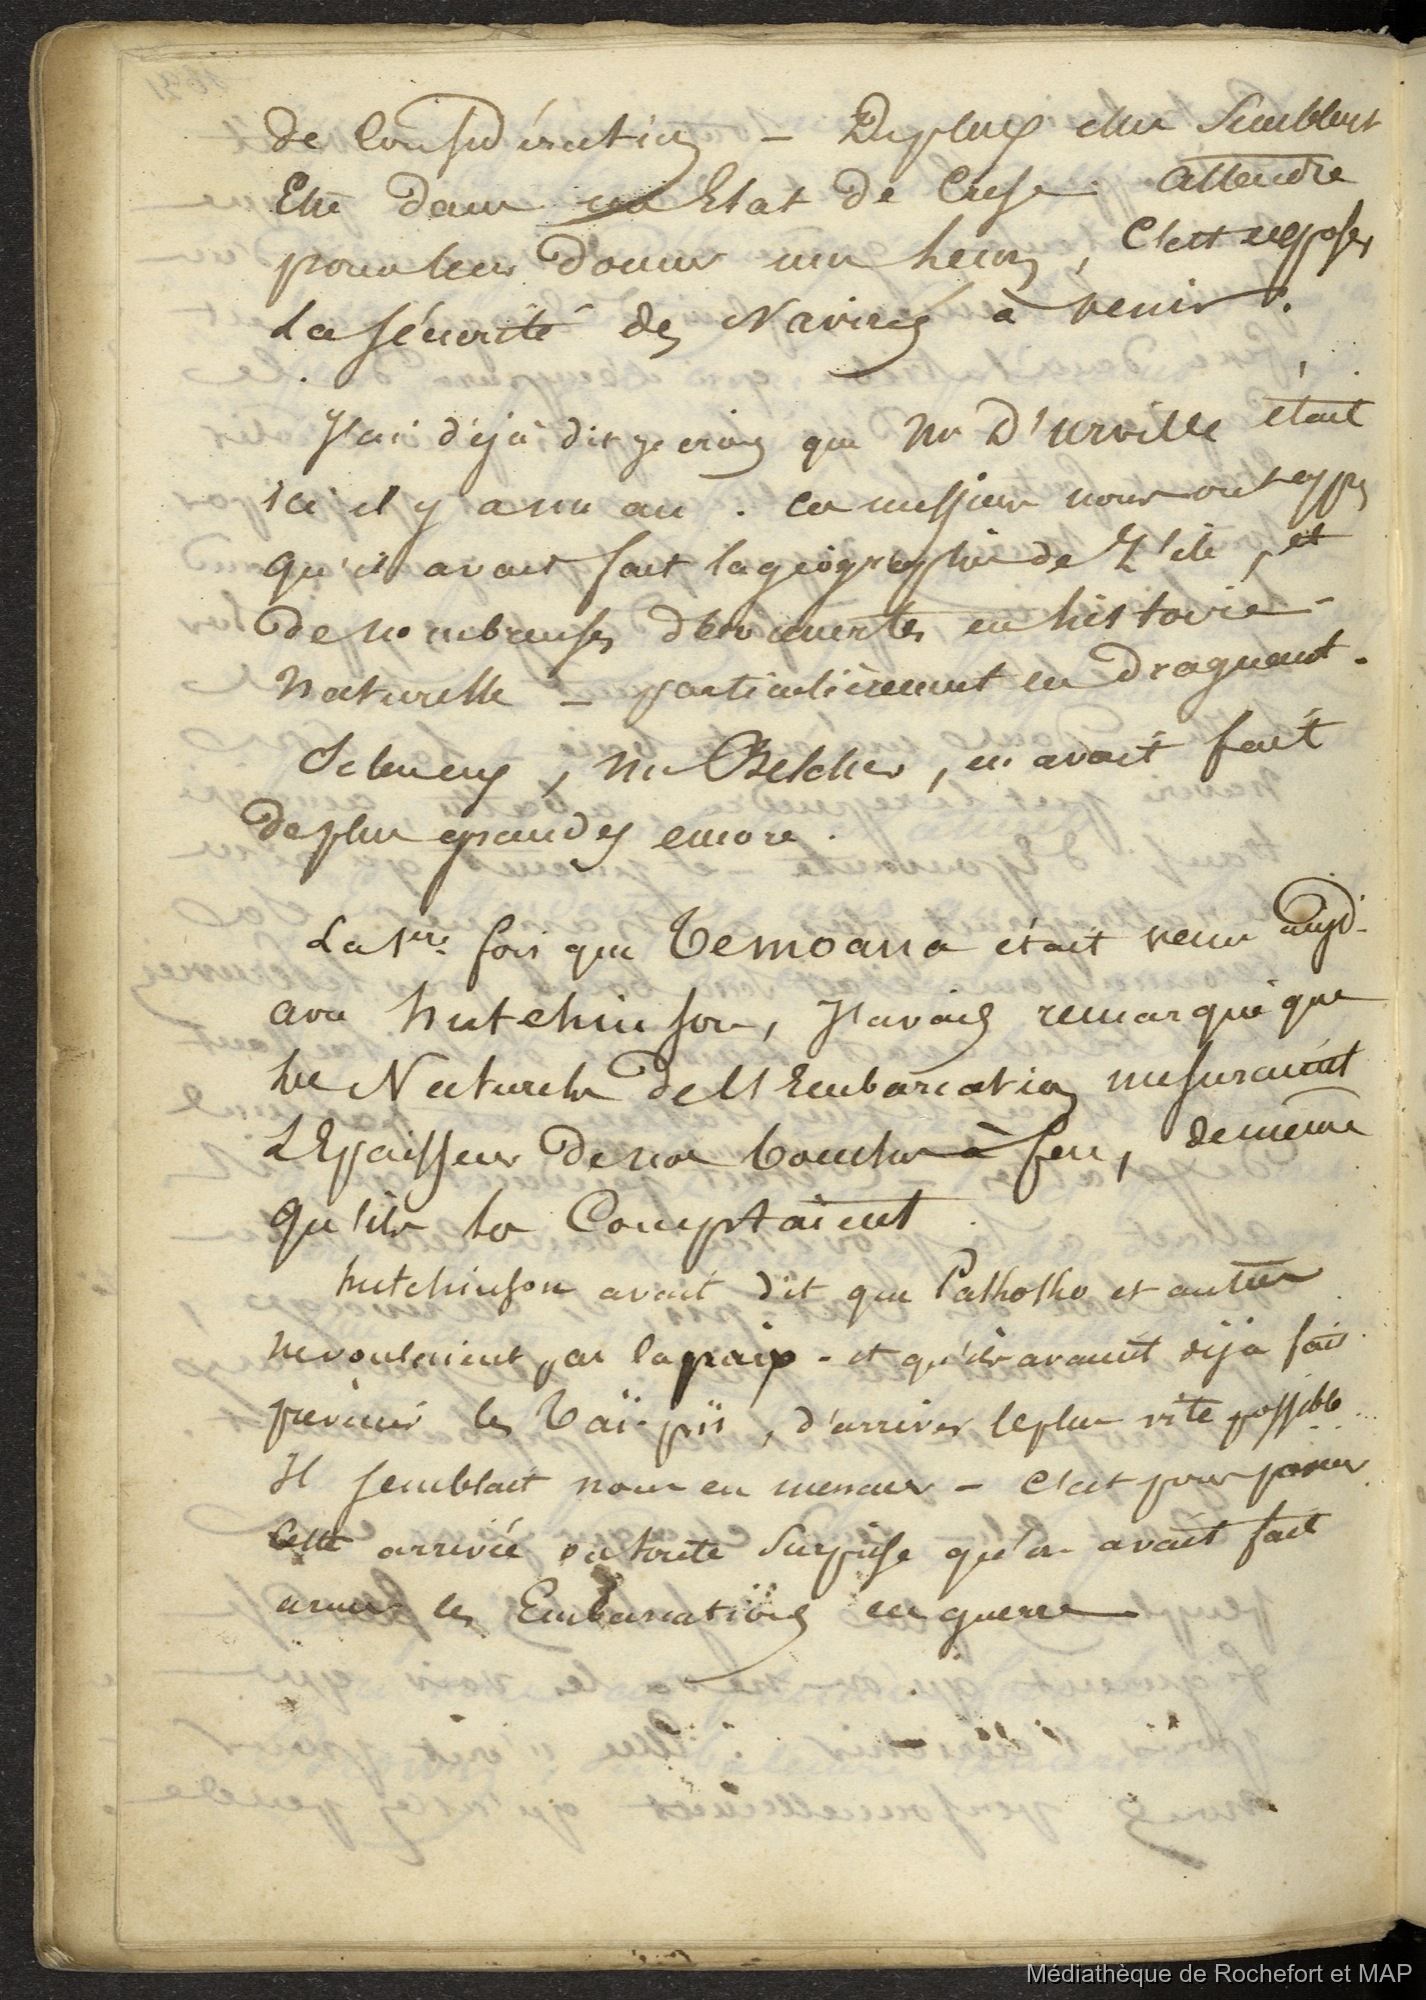 de Considération — De plus elles semblent
Etre dans un Etat de Crise. Attendre
pour leur donner une leçon, c'est exposer
La sécurité des Navires à venir.
J'ai déjà dit je crois que Mr D'urville était
ici il y a un an. ces messieurs nous ont appris
qu'il avait fait la géographie de l'ile, et
de nombreuses découvertes en histoire-
naturelle — particulièrement en draguant.
Selon eux, Mr Belcher, en avait fait
de plus grandes encore.
La 1ère fois que Temoana était venu aujd-
avec hutchinson, J'avais remarqué que
les Naturels de l'Embarcation mesuraient
L'Epaisseur de nos bouches à feu, de meme
qu'ils les Comptaient.
hutchinson avait dit que Pakhokho et autres
ne voulaient pas la paix - et qu'ils avaient déjà fait
prévenir les Taï-piï, d'arriver le plus vite possible
Il semblait nous en menacer — C'est pour parer
cette arrivée ou toute Surprise qu'on avait fait
armer les Embarcations en guerre
Médiathèque de Rochefort et MAP